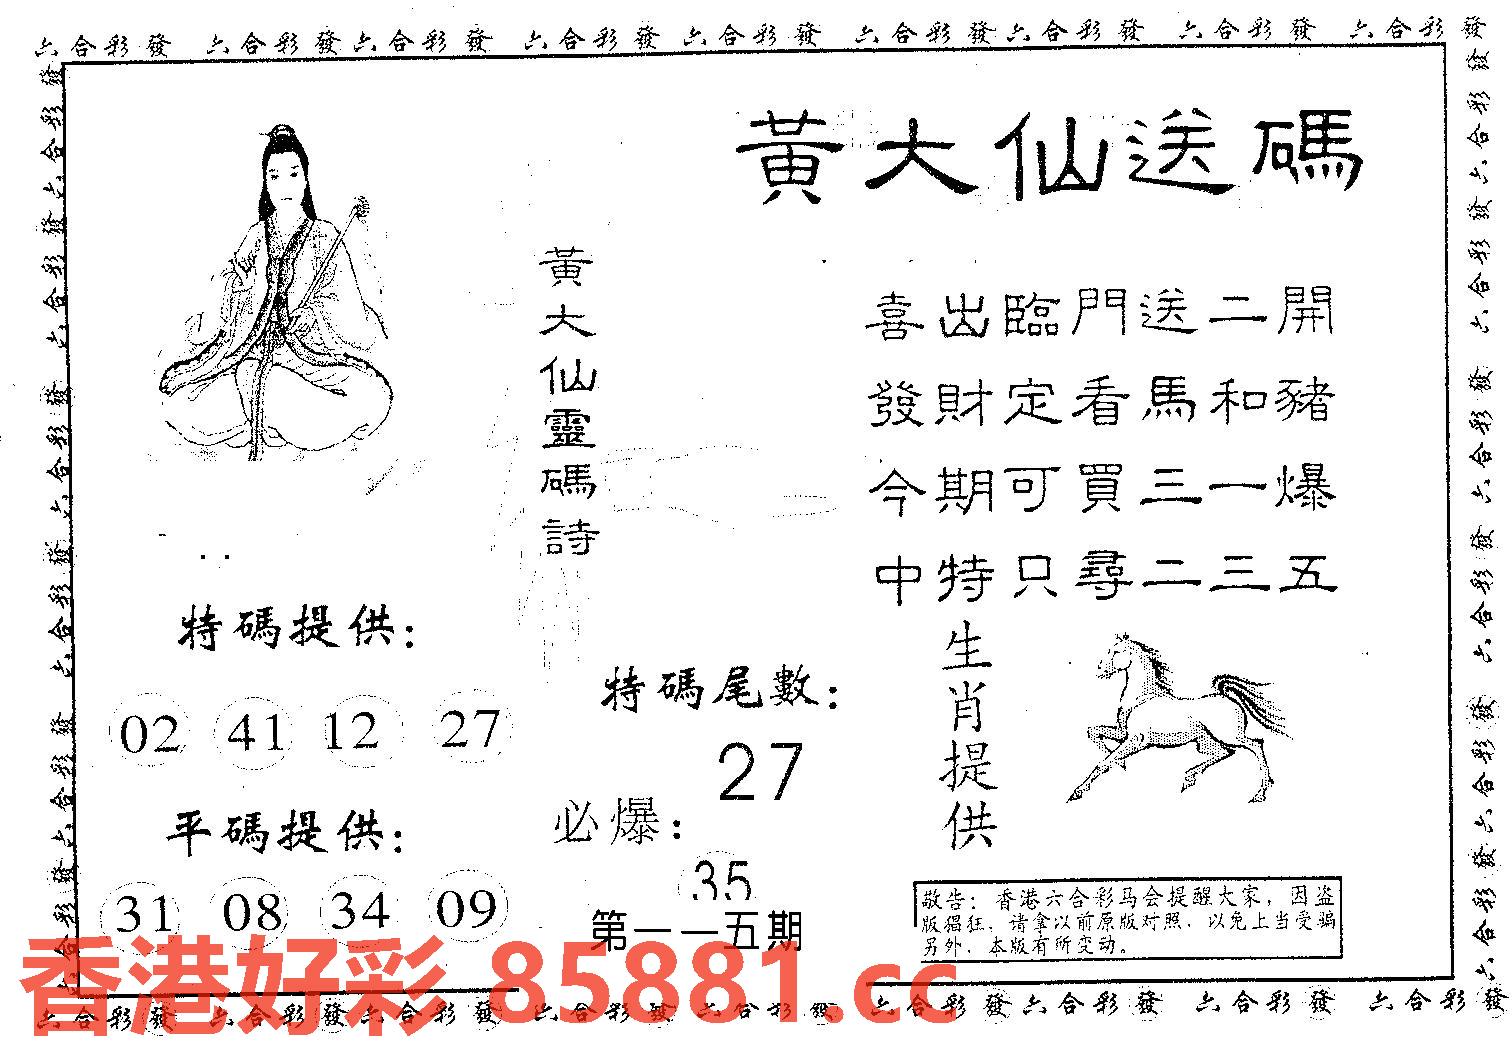 六合彩發 六合彩發 六合彩發 六合彩發 六合彩發 六合彩發 六合彩發 六合彩發 六合彩發
黃大仙送碼
黃大仙靈碼詩
喜出臨門送二開
發財定看馬和豬
今期可買三一爆
中特只尋二三五
特碼提供：
02 41 12 27
平碼提供：
31 08 34 09
特碼尾數：
27
必爆：
35
第一一五期
生肖提供
敬告：香港六合彩马会提醒大家，因盗
版猖狂，请拿以前原版对照，以免上当受骗
另外，本版有所变动。
香港好彩 85881.cc
六合彩發 六合彩發 六合彩發 六合彩發 六合彩發 六合彩發 六合彩發 六合彩發 六合彩發